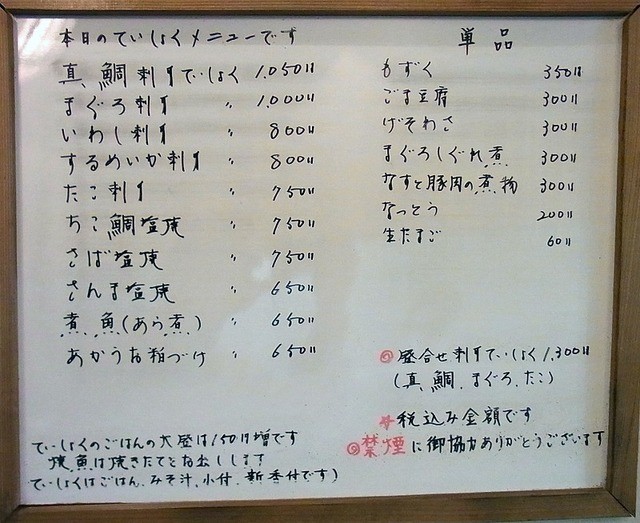 本日のていしょくメニューです
真、鯛刺身ていしょく 1,050円
まぐろ刺身 〃 1,000円
いわし刺身 〃 800円
するめいか刺身 〃 800円
たこ刺身 〃 750円
ちこ鯛塩焼 〃 750円
さば塩焼 〃 750円
さんま塩焼 〃 650円
煮、魚(あら煮、) 〃 650円
あかうお粕づけ 〃 650円
ていしょくのごはんの大盛は150円増です
焼、魚は焼きたてをお出しします
ていしょくはごはん、みそ汁、小付、新香付です)
単品
もずく 350円
ごま豆腐 300円
げそわさ 300円
まぐろしぐれ煮 300円
なすと豚肉の煮物 300円
なっとう 200円
生たまご 60円
◎盛合せ刺身ていしょく1,300円
(真、鯛、まぐろ、たこ)
税込み金額です
◎禁煙に御協力ありがとうございます